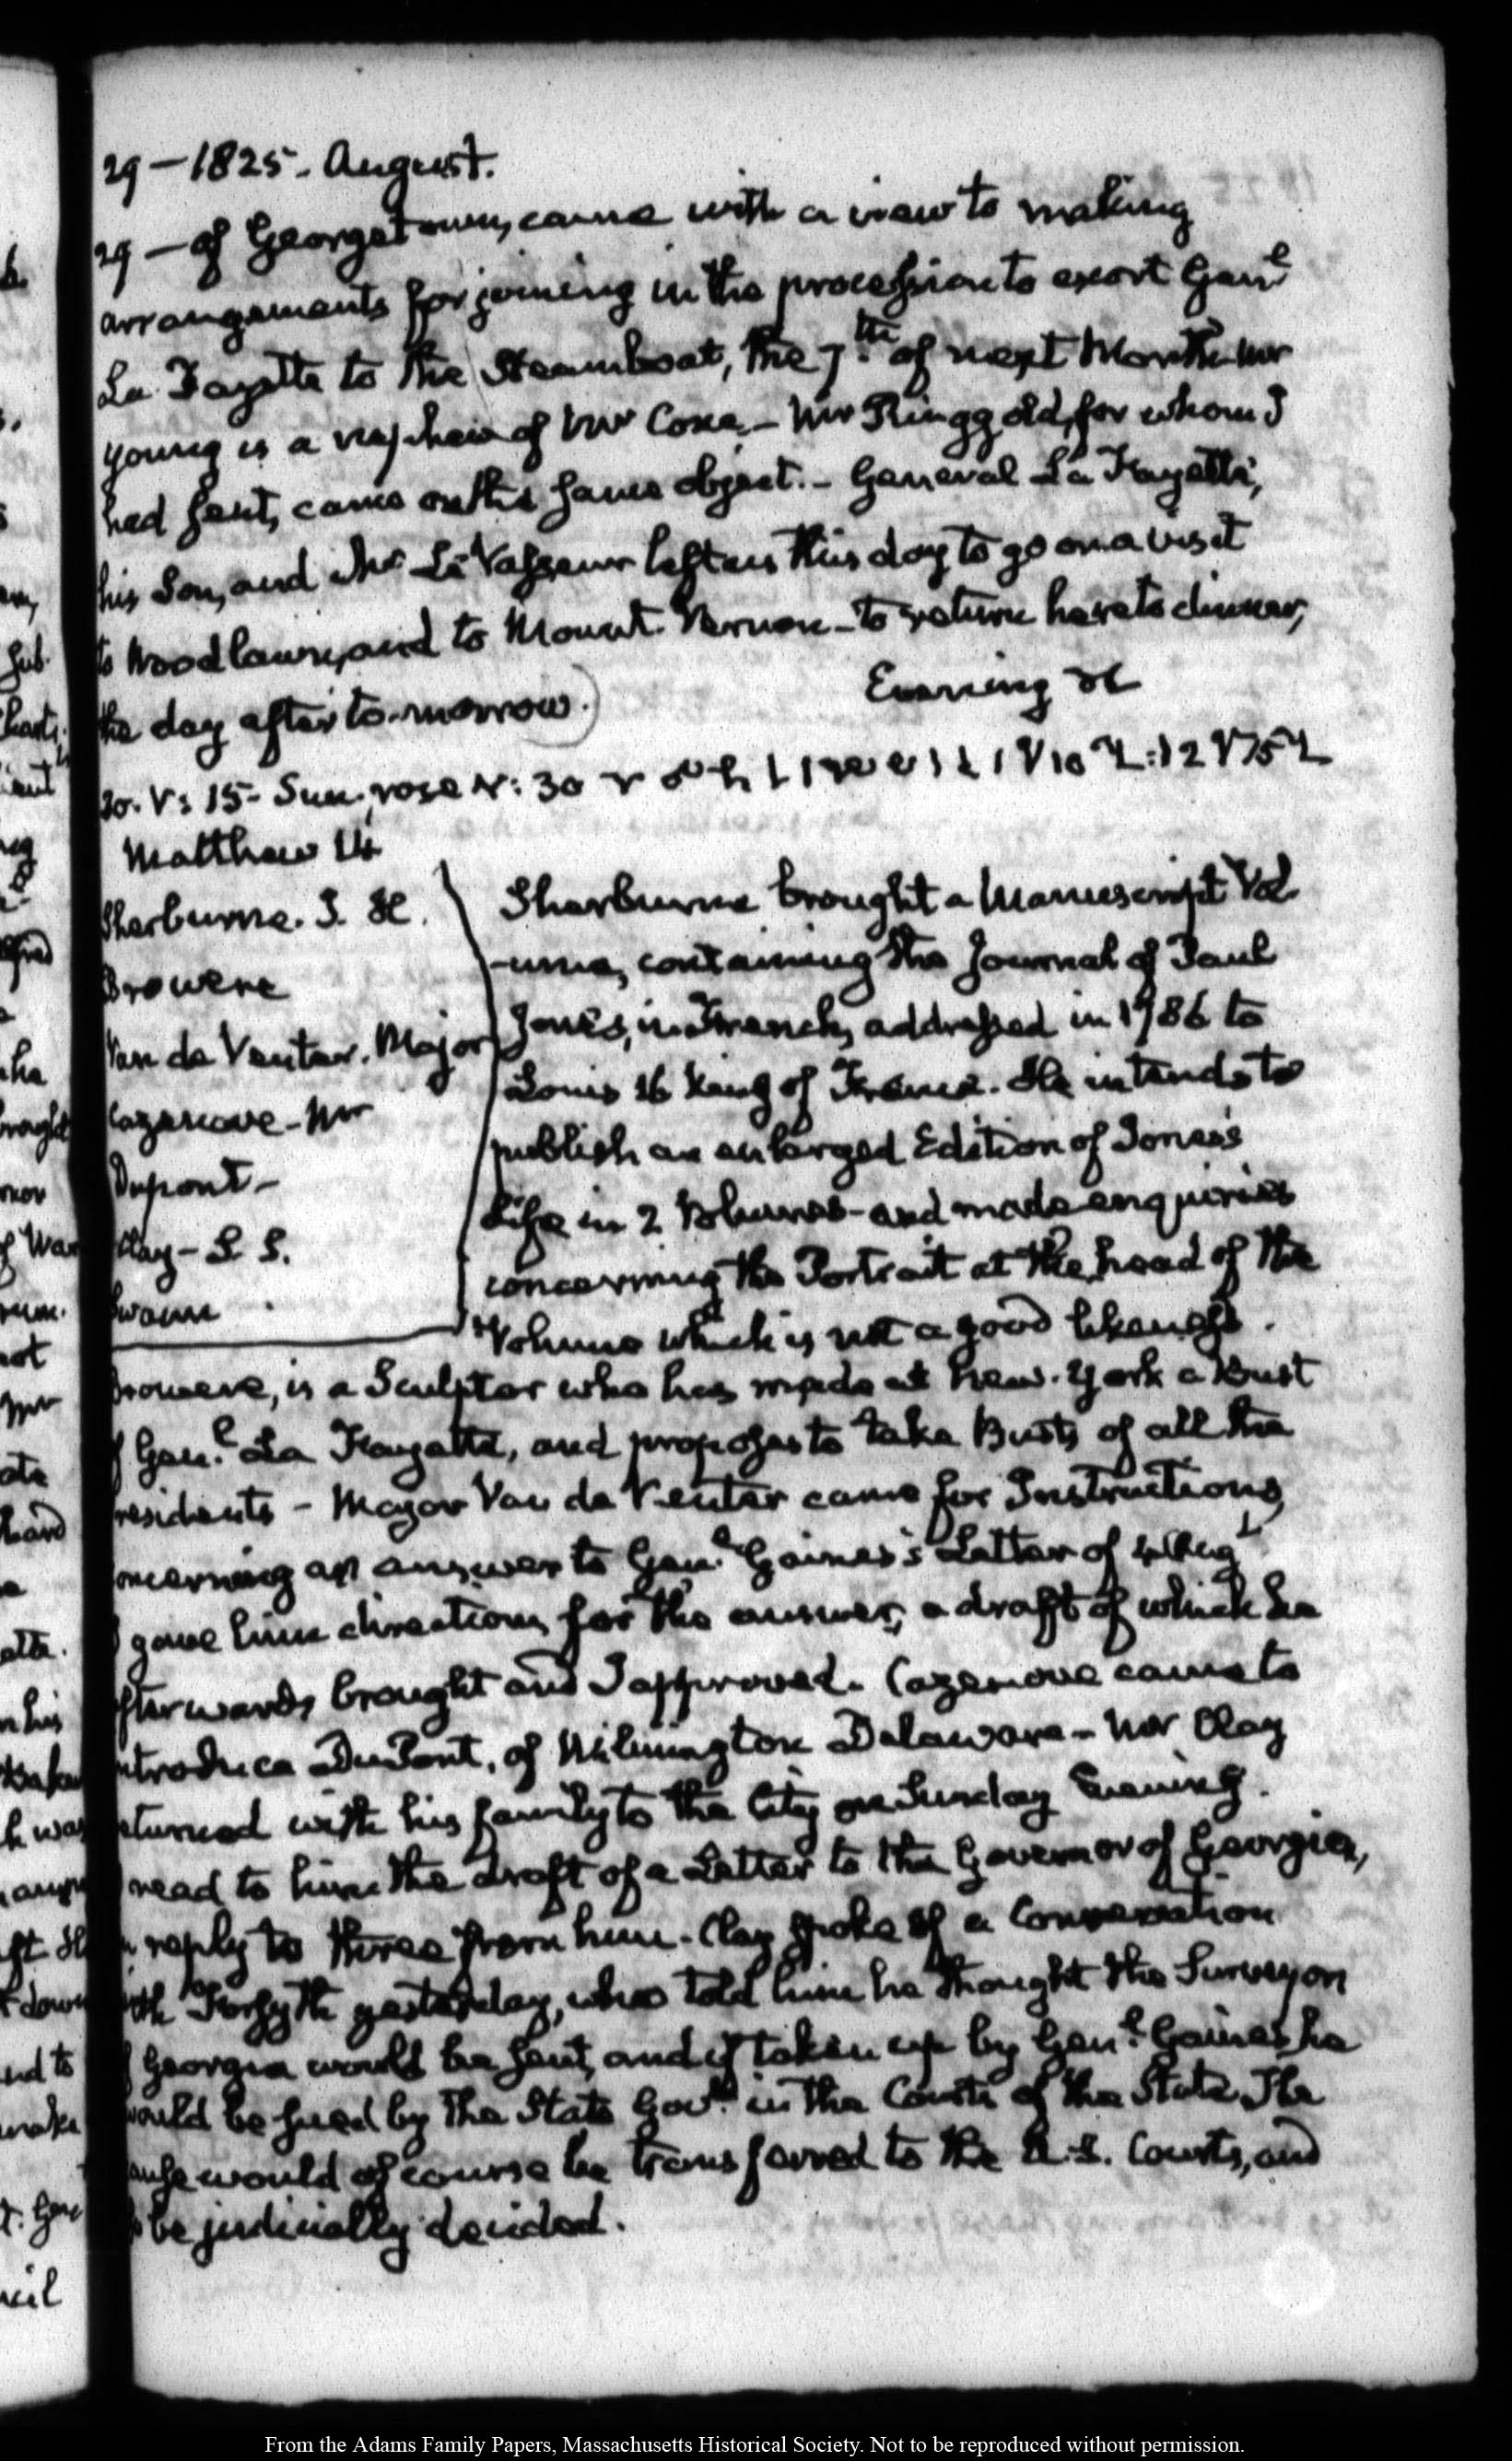 29 — 1825. August.
29 — of Georgetown, came with a view to making
arrangements for joining in the procession to escort Genl
La Fayette to the Steamboat, the 7th of next Month. Mr
Young is a nephew of Mr Coxe. — Mr Ringgold, for whom I
had sent, came on the same object. — General La Fayette,
his Son, and Mr Le Vasseur left us this day to go on a visit
to Woodlawn, and to Mount Vernon — to return here to dinner,
the day after to-morrow.)
Evening
30. V: 15. Sun. rose V: 30
Matthew 14
Sherburne. J. H.
Browere
Van de Venter. Major
Cazenove — Mr
Dupont —
Clay — S. S.
Swann
Sherburne brought a Manuscript Vol
-ume, containing the Journal of Paul
Jones, in French, addressed in 1786 to
Louis 16 King of France. He intends to
publish an enlarged Edition of Jones's
Life in 2 Volumes — and made enquiries
concerning the Portrait at the head of the
Volume which is not a good likeness.
Browere, is a Sculptor who has made at New-York a Bust
of Genl La Fayette, and proposes to take Busts of all the
residents — Major Van de Venter came for Instructions
oncerning an answer to Genl Gaines's Letter of
I gave him directions for the answer, a draft of which he
fterwards brought and I approved. Cazenove came to
ntroduce DuPont, of Wilmington Delaware — Mr Clay
eturned with his family to the City on Sunday Evening.
I read to him the draft of a Letter to the Governor of Georgia,
in reply to three from him. Clay spoke of a Conversation
with Forsyth yesterday, who told him he thought the Survey on
of Georgia would be sent, and if taken up by Genl Gaines, he
would be sued by the State Govt in the Courts of the State. The
ause would of course be transferred to the U.S. Courts, and
o be judicially decided.
From the Adams Family Papers, Massachusetts Historical Society. Not to be reproduced without permission.